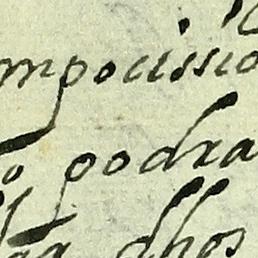 mpocissio
podra
dhos